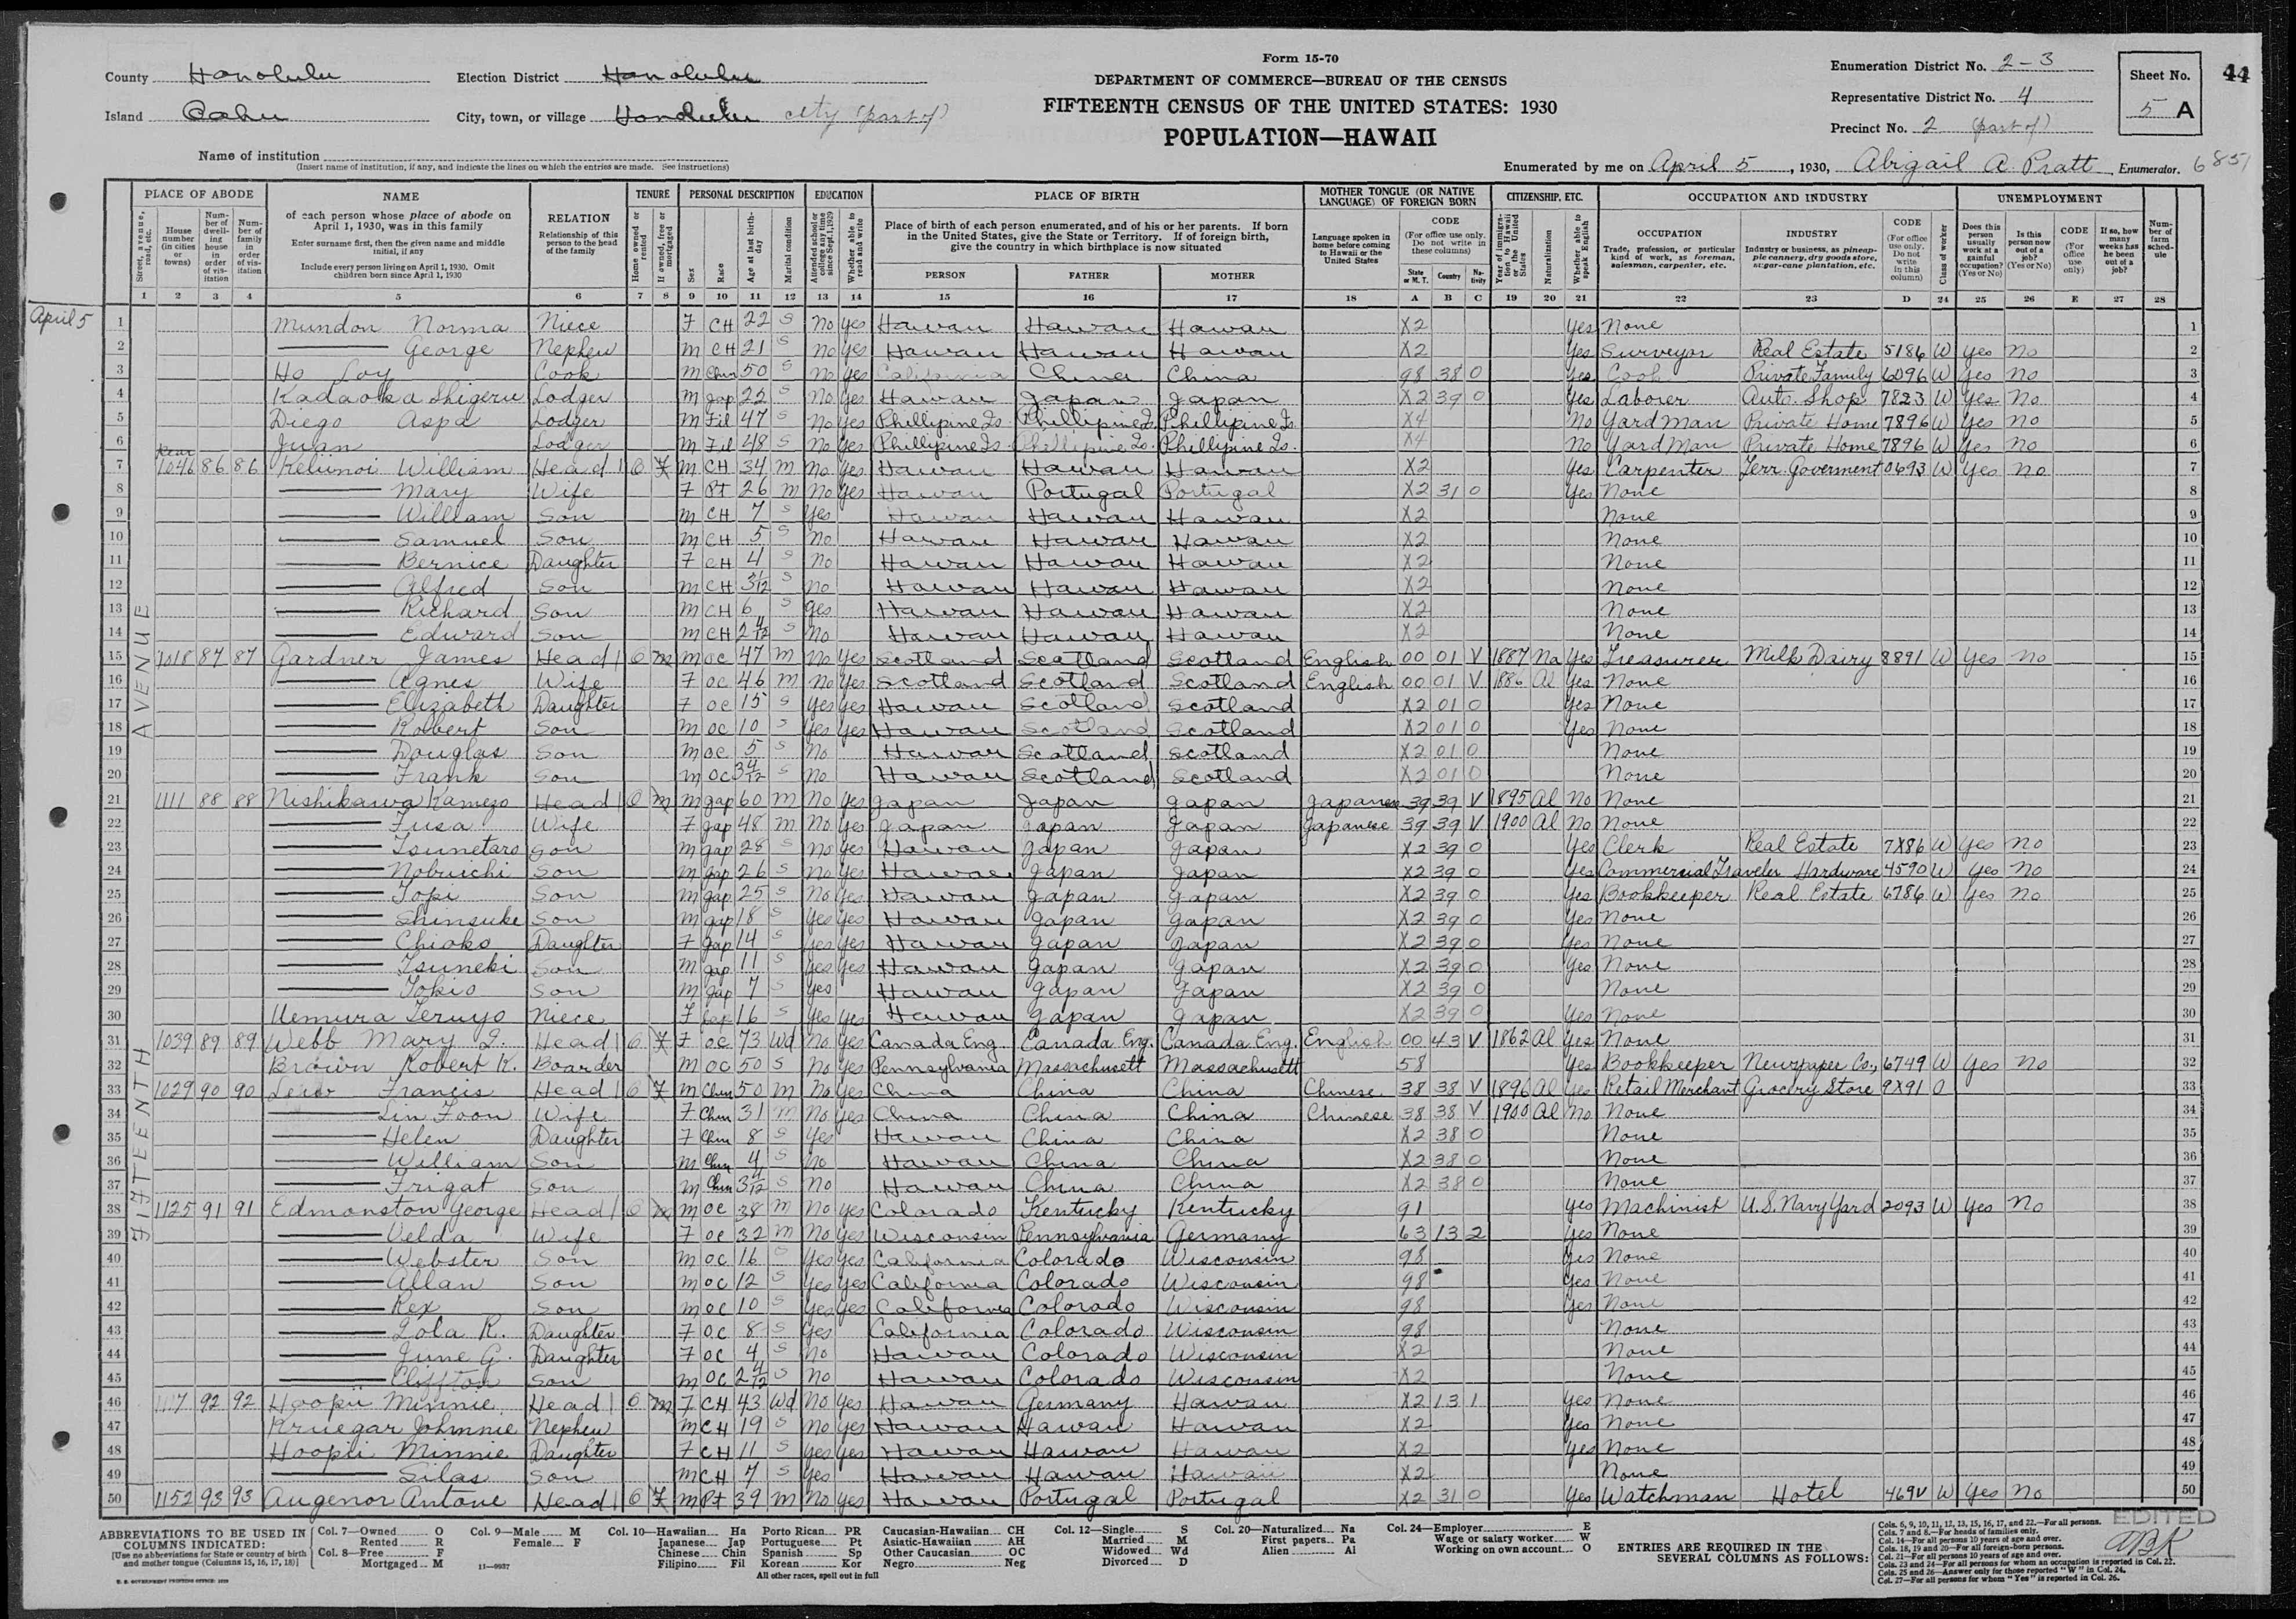 Form 15-70
DEPARTMENT OF COMMERCE—BUREAU OF THE CENSUS
FIFTEENTH CENSUS OF THE UNITED STATES: 1930
POPULATION—HAWAII
County Honolulu Election District Honolulu
Island Oahu City, town, or village Honolulu city (part of)
Name of institution
(Insert name of institution, if any, and indicate the lines on which the entries are made. See instructions)
Enumeration District No. 2-3
Representative District No. 4
Precinct No. 2 (part of)
Sheet No. 5 A
44
Enumerated by me on April 5, 1930, Abigail A. Pratt, Enumerator. 6851
PLACE OF ABODE NAME RELATION TENURE PERSONAL DESCRIPTION EDUCATION PLACE OF BIRTH MOTHER TONGUE (OR NATIVE LANGUAGE) OF FOREIGN BORN CITIZENSHIP, ETC. OCCUPATION AND INDUSTRY UNEMPLOYMENT
April 5
FIFTEENTH AVENUE
1 Mundon Norma Niece F CH 22 S No Yes Hawaii Hawaii Hawaii X2 Yes None
2 George Nephew M CH 21 S No Yes Hawaii Hawaii Hawaii X2 Yes Surveyor Real Estate 5186 W Yes No
3 Ho Loy Cook M Chin 50 S No Yes California China China 98 38 0 Yes Cook Private Family 6096 W Yes No
4 Kadaoka Shigeru Lodger M Jap 22 S No Yes Hawaii Japan Japan X2 39 0 Yes Laborer Auto. Shop 7823 W Yes No
5 Diego Aspa Lodger M Fil 47 S No Yes Phillipine Is. Phillipine Is. Phillipine Is. X4 No Yard Man Private Home 7896 W Yes No
6 Juan Lodger M Fil 48 S No Yes Phillipine Is. Phillipine Is. Phillipine Is. X4 No Yard Man Private Home 7896 W Yes No
7 Rear 1046 86 86 Keliinoi William Head O F M CH 34 M No Yes Hawaii Hawaii Hawaii X2 Yes Carpenter Terr. Goverment 0693 W Yes No
8 Mary Wife F Pt 26 M No Yes Hawaii Portugal Portugal X2 31 0 Yes None
9 William Son M CH 7 S Yes Hawaii Hawaii Hawaii X2 None
10 Samuel Son M CH 5 S No Hawaii Hawaii Hawaii X2 None
11 Bernice Daughter F CH 4 S No Hawaii Hawaii Hawaii X2 None
12 Alfred Son M CH S No Hawaii Hawaii Hawaii X2 None
13 Richard Son M CH 6 S Yes Hawaii Hawaii Hawaii X2 None
14 Edward Son M CH 2 4/12 S No Hawaii Hawaii Hawaii X2 None
15 1018 87 87 Gardner James Head O M M OC 47 M No Yes Scotland Scotland Scotland English 00 01 V 1887 Na Yes Treasurer Milk Dairy 8891 W Yes No
16 Agnes Wife F OC 46 M No Yes Scotland Scotland Scotland English 00 01 V 1886 Al Yes None
17 Elizabeth Daughter F OC 15 S Yes Yes Hawaii Scotland Scotland X2 01 0 Yes None
18 Robert Son M OC 10 S Yes Yes Hawaii Scotland Scotland X2 01 0 Yes None
19 Douglas Son M OC 5 S No Hawaii Scotland Scotland X2 01 0 None
20 Frank Son M OC 3 4/12 S No Hawaii Scotland Scotland X2 01 0 None
21 1111 88 88 Nishikawa Kamezo Head O M M Jap 60 M No Yes Japan Japan Japan Japanese 39 39 V 1895 Al No None
22 Fusa Wife F Jap 48 M No Yes Japan Japan Japan Japanese 39 39 V 1900 Al No None
23 Tsunetaro Son M Jap 28 S No Yes Hawaii Japan Japan X2 39 0 Yes Clerk Real Estate 7X86 W Yes No
24 Nobuichi Son M Jap 26 S No Yes Hawaii Japan Japan X2 39 0 Yes Commercial Traveler Hardware 4590 W Yes No
25 Topi Son M Jap 25 S No Yes Hawaii Japan Japan X2 39 0 Yes Bookkeeper Real Estate 6786 W Yes No
26 Shinsuke Son M Jap 18 S Yes Yes Hawaii Japan Japan X2 39 0 Yes None
27 Chioko Daughter F Jap 14 S Yes Yes Hawaii Japan Japan X2 39 0 Yes None
28 Tsuneki Son M Jap 11 S Yes Yes Hawaii Japan Japan X2 39 0 Yes None
29 Tokio Son M Jap 7 S Yes Hawaii Japan Japan X2 39 0 None
30 Uemura Teruyo Niece F Jap 16 S Yes Yes Hawaii Japan Japan X2 39 0 Yes None
31 1039 89 89 Webb Mary Head O F F OC 73 Wd No Yes Canada Eng. Canada Eng. Canada Eng. English 00 43 V 1862 Al Yes None
32 Brown Robert K. Boarder M OC 50 S No Yes Pennsylvania Massachusett Massachusett 58 Yes Bookkeeper Newspaper Co., 6749 W Yes No
33 1029 90 90 Francis Head O F M Chin 50 M No Yes China China China Chinese 38 38 V 1896 Al Yes Retail Merchant Grocery Store 9X91 O
34 Lin Foon Wife F Chin 31 M No Yes China China China Chinese 38 38 V 1900 Al No None
35 Helen Daughter F Chin 8 S Yes Hawaii China China X2 38 0 None
36 William Son M Chin 4 S No Hawaii China China X2 38 0 None
37 Frigat Son M Chin 3 4/12 S No Hawaii China China X2 38 0 None
38 1125 91 91 Edmonston George Head O M M OC 38 M No Yes Colorado Kentucky Kentucky 91 Yes Machinist U.S. Navy Yard 2093 W Yes No
39 Velda Wife F OC 32 M No Yes Wisconsin Pennsylvania Germany 63 13 2 Yes None
40 Webster Son M OC 16 S Yes Yes California Colorado Wisconsin 98 Yes None
41 Allan Son M OC 12 S Yes Yes California Colorado Wisconsin 98 Yes None
42 Rex Son M OC 10 S Yes Yes California Colorado Wisconsin 98 Yes None
43 Lola R. Daughter F OC 8 S Yes California Colorado Wisconsin 98 None
44 June G. Daughter F OC 4 S No Hawaii Colorado Wisconsin X2 None
45 Cliffton Son M OC 2 4/12 S No Hawaii Colorado Wisconsin X2 None
46 1117 92 92 Hoopii Minnie Head O M F CH 43 Wd No Yes Hawaii Germany Hawaii X2 13 1 Yes None
47 Kruegar Johnnie Nephew M CH 19 S No Yes Hawaii Hawaii Hawaii X2 Yes None
48 Hoopii Minnie Daughter F CH 11 S Yes Yes Hawaii Hawaii Hawaii X2 Yes None
49 Silas Son M CH 7 S Yes Hawaii Hawaii Hawaii X2 None
50 1152 93 93 Augenor Antone Head O F M Pt 39 M No Yes Hawaii Portugal Portugal X2 31 0 Yes Watchman Hotel 469V W Yes No
ABBREVIATIONS TO BE USED IN COLUMNS INDICATED:
[Use no abbreviations for State or country of birth and mother tongue (Columns 15, 16, 17, 18)]
Col. 7—Owned O Rented R
Col. 8—Free F Mortgaged M
Col. 9—Male M Female F
Col. 10—Hawaiian Ha Japanese Jap Chinese Chin Filipino Fil Porto Rican PR Portuguese Pt Spanish Sp Korean Kor Caucasian-Hawaiian CH Asiatic-Hawaiian AH Other Caucasian OC Negro Neg
All other races, spell out in full
Col. 12—Single S Married M Widowed Wd Divorced D
Col. 20—Naturalized Na First papers Pa Alien Al
Col. 24—Employer E Wage or salary worker W Working on own account O
ENTRIES ARE REQUIRED IN THE SEVERAL COLUMNS AS FOLLOWS:
Cols. 6, 9, 10, 11, 12, 13, 15, 16, 17, and 22.—For all persons.
Cols. 7 and 8.—For heads of families only.
Col. 14—For all persons 10 years of age and over.
Cols. 18, 19 and 20—For all foreign-born persons.
Col. 21—For all persons 10 years of age and over.
Cols. 23 and 24—For all persons for whom an occupation is reported in Col. 22.
Cols. 25 and 26—Answer only for those reported "W" in Col. 24.
Col. 27—For all persons for whom "Yes" is reported in Col. 26.
EDITED